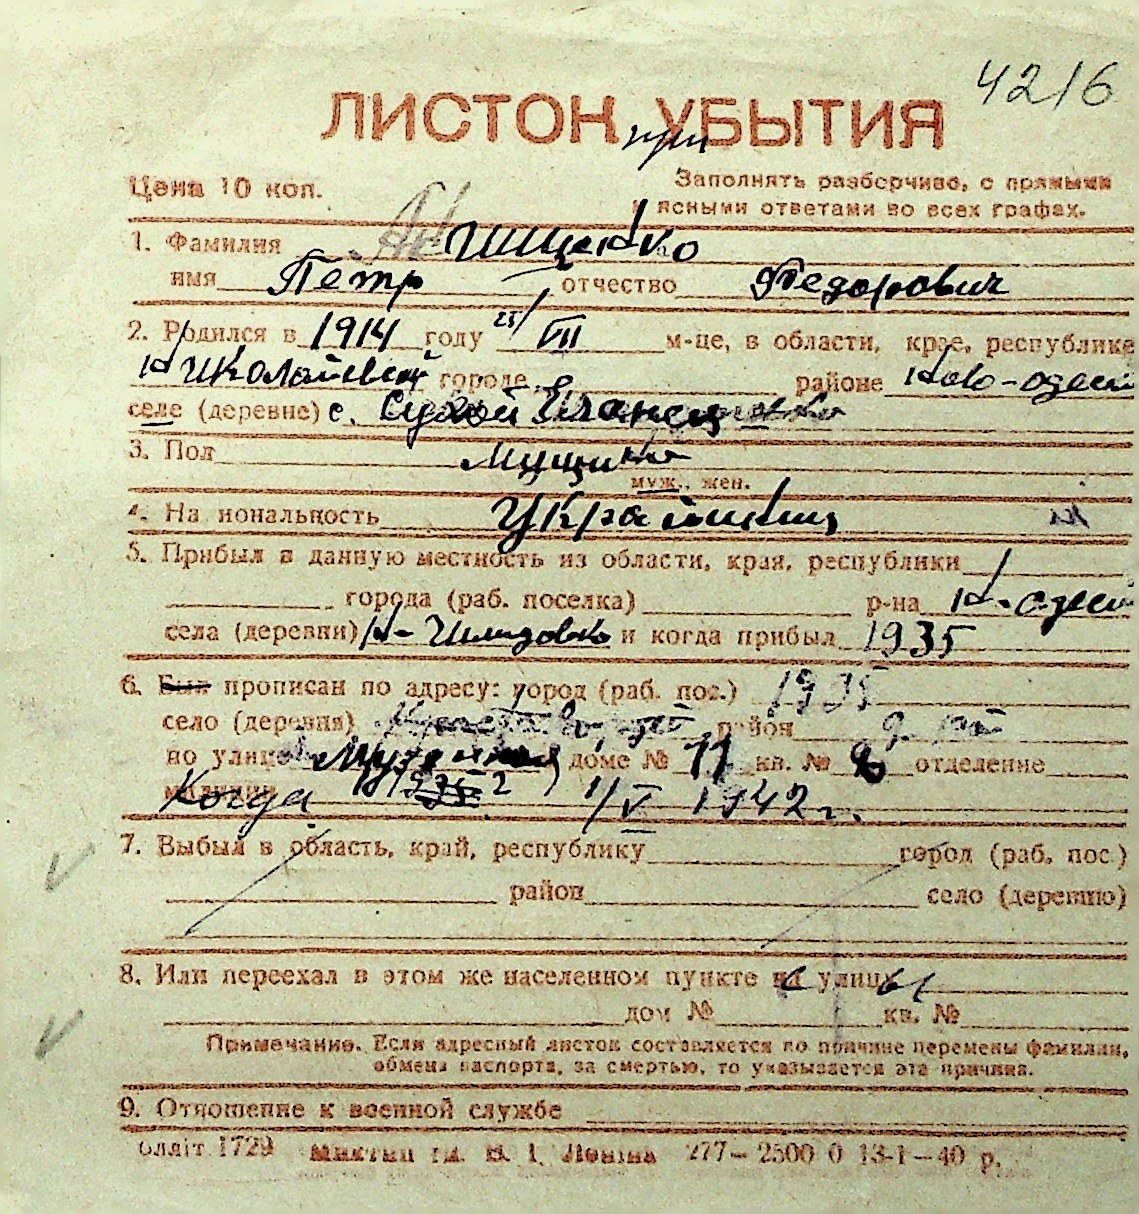 4216
ЛИСТОК УБЫТИЯ
при
Цена 10 коп.
Заполнять разборчиво, с прямыми
и ясными ответами во всех графах.
1. Фамилия Нищенко
имя Петр отчество Федорович
2. Родился в 1914 году 25/VII м-це, в области, крае, республике
Николаевской городе районе Ново-одесс
селе (деревне) с. Сухой Еланец
3. Пол Мущина
муж., жен.
4. На иональность Украинец
5. Прибыл в данную местность из области, края, республики
города (раб. поселка) р-на Н-одесс
села (деревни) и когда прибыл 1935
6. Был прописан по адресу: город (раб. пос.) 1935
село (деревня) район
по улице доме № 11 кв. № отделение
милиции Когда 1/V 1942 г.
7. Выбыл в область, край, республику город (раб. пос.)
район село (деревню)
8. Или переехал в этом же населенном пункте на улицу
дом № кв. №
Примечание. Если адресный листок составляется по причине перемены фамилии,
обмена паспорта, за смертью, то указывается эта причина.
9. Отношение к военной службе
блліт 1729 Миктип ім. В. І. Леніна 277—2500 0 13-1—40 р.